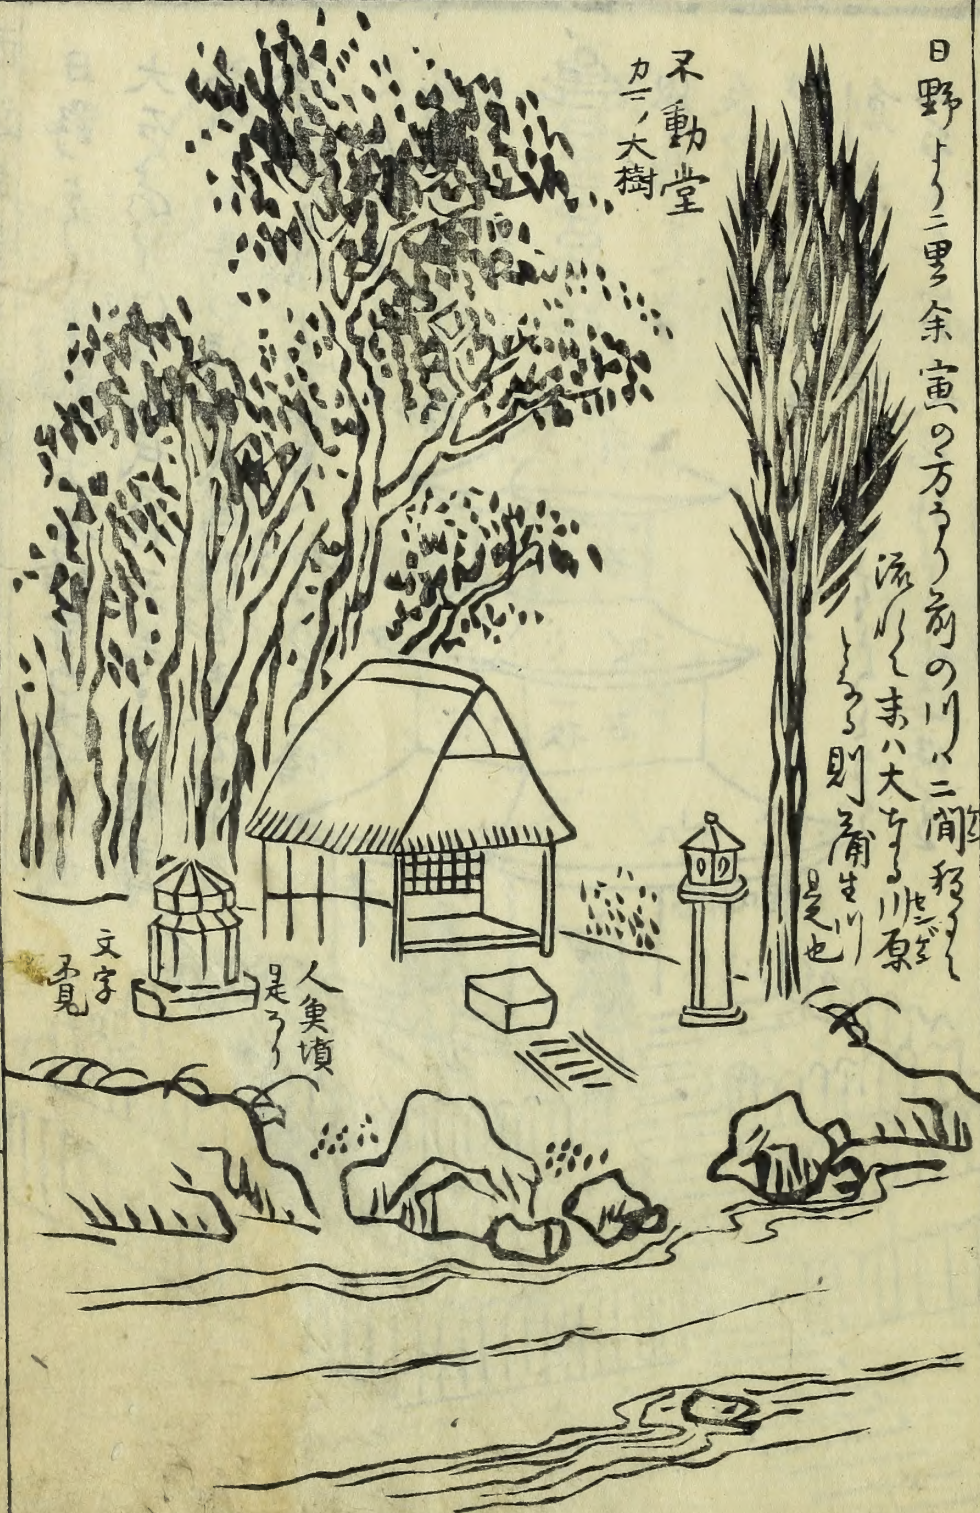 日野より二里余寅の方なり前の川ハ二間程にて
流れて末ハ大なる川原
となる則蒲生川
是也
不動堂
大樹
人魚墳
是なり
文字
不見